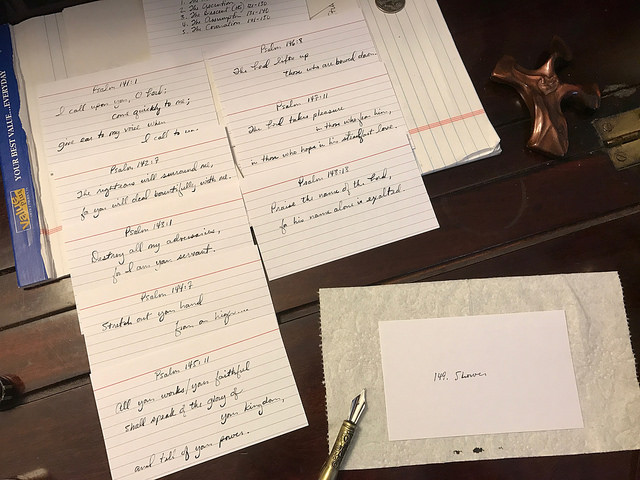 3. The Descent (HS) 91-120
4. The Assumption 121-140
5. The Coronation 141-150
YOUR BEST VALUE...EVERYDAY
value
Psalm 141:1
I call upon you, O Lord;
come quickly to me;
give ear to my voice when
I call to you.
Psalm 142:7
The righteous will surround me,
for you will deal bountifully with me.
Psalm 143:1
Destroy all my adversaries,
for I am your servant.
Psalm 144:7
Stretch out your hand
from on high....
Psalm 145:11
All your works/your faithful
shall speak of the glory of
your kingdom,
and tell of your power.
Psalm 146:8
The Lord lifts up
those who are bowed down.
Psalm 147:11
The Lord takes pleasure
in those who fear him,
in those who hope in his steadfast love.
Psalm 148:13
Praise the name of the Lord,
for his name alone is exalted.
149.